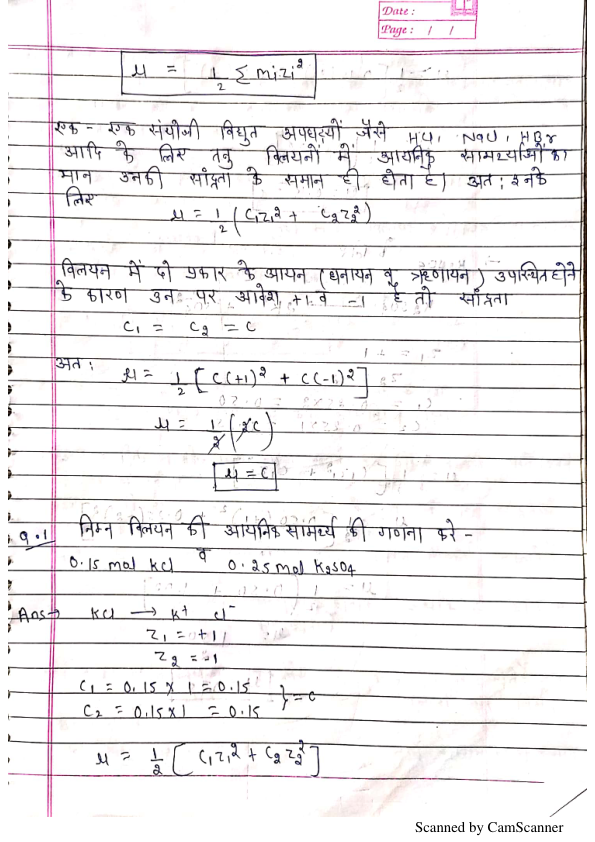 Date :
Page : / /
μ = 1/2 Σ mizi²
एक - एक संयोजी विद्युत अपघट्यों जैसे HCl, NaCl, HBr
आदि के लिए तनु विलयनों में आयनिक सामर्थ्याओं का
मान उनकी सांद्रता के समान ही होता है। अतः इनके
लिए
μ = 1/2 (C₁z₁² + C₂z₂²)
विलयन में दो प्रकार के आयन (धनायन व ऋणायन) उपस्थित होने
के कारण उन पर आवेश +1 व -1 है तो सांद्रता
C₁ = C₂ = C
अतः μ = 1/2 [C(+1)² + C(-1)²]
μ = 1/2 (2C)
μ = C
Q.1 निम्न विलयन की आयनिक सामर्थ्य की गणना करे -
0.15 mol KCl व 0.25 mol K₂SO₄
Ans→ KCl → K⁺ Cl⁻
Z₁ = +1
Z₂ = -1
C₁ = 0.15 × 1 = 0.15
C₂ = 0.15×1 = 0.15 } = C
μ = 1/2 [C₁z₁² + C₂z₂²]
Scanned by CamScanner